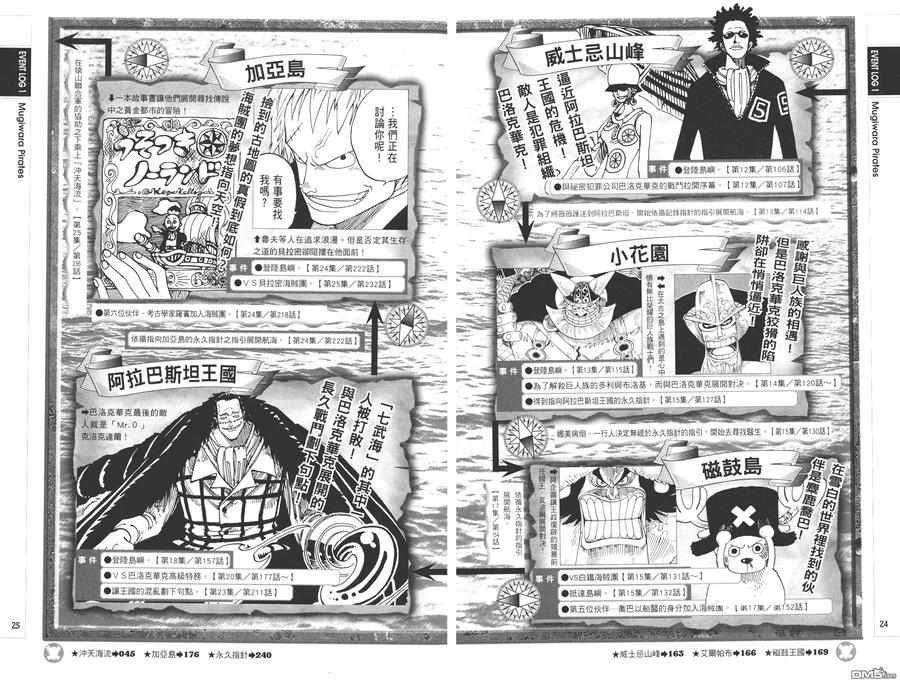 EVENT LOG 1
Mugiwara Pirates
威士忌山峰
逼近阿拉巴斯坦
王國的危機！
敵人是犯罪組織
巴洛克華克！
事件
●登陸島嶼。【第12集／第106話】
●與祕密犯罪公司巴洛克華克的戰鬥拉開序幕。【第12集／第107話】
為了將薇薇護送到阿拉巴斯坦，開始依循記錄指針的指引展開航海。【第13集／第114話】
小花園
感謝與巨人族的相遇！
但是巴洛克華克狡猾的陷
阱卻在悄悄逼近！
➡在太古之島上遇到的是心中
懷有無比榮耀的巨人族戰士們！
事件
●登陸島嶼。【第13集／第115話】
●為了解救巨人族的多利與布洛基，而與巴洛克華克展開對決。【第14集／第120話～】
●得到指向阿拉巴斯坦王國的永久指針。【第15集／第127話】
娜美病倒。一行人決定無視於永久指針的指引，開始去尋找醫生。【第15集／第130話】
磁鼓島
在雪白的世界裡找到的伙
伴是麋鹿喬巴！
➡與企圖讓王政復辟的殘暴前
任國王‧瓦波爾展開對決！
事件
●VS白鐵海賊團【第15集／第131話～】
●抵達島嶼。【第15集／第132話】
●第五位伙伴—喬巴以船醫的身分加入海賊團。【第17集／第152話】
依循永久指針的指引
展開航海。
【第17集／第154話】
★威士忌山峰➡163 ★艾爾帕布➡166 ★磁鼓王國➡169
24
EVENT LOG 1
Mugiwara Pirates
阿拉巴斯坦王國
➡巴洛克華克最後的敵
人就是「Mr.0」
克洛克達爾！
「七武海」的其中一
人被打敗！
與巴洛克華克展開的
長久戰鬥劃下句點！
事件
●登陸島嶼。【第18集／第157話】
●VS巴洛克華克高級特務。【第20集／第177話～】
●讓王國的混亂劃下句點。【第23集／第211話】
依循指向加亞島的永久指針之指引展開航海。【第24集／第222話】
●第六位伙伴，考古學家羅賓加入海賊團。【第24集／第218話】
加亞島
⬇一本故事書讓他們展開尋找傳說
中之黃金都市的冒險！
うそつき
ノーランド
撿到的古地圖的真假到底如何？
海賊團的夢想指向天空！
…我們正在
討論你呢！
有事要找
我嗎？
⬆魯夫等人在追求浪漫。但是否定其生存
之道的貝拉密卻阻擋在他面前！
事件
●登陸島嶼。【第24集／第222話】
●VS貝拉密海賊團。【第25集／第232話】
在猿山聯合軍的協助之下乘上「沖天海流」。【第25集／第236話】
★沖天海流➡045 ★加亞島➡176 ★永久指針➡240
25